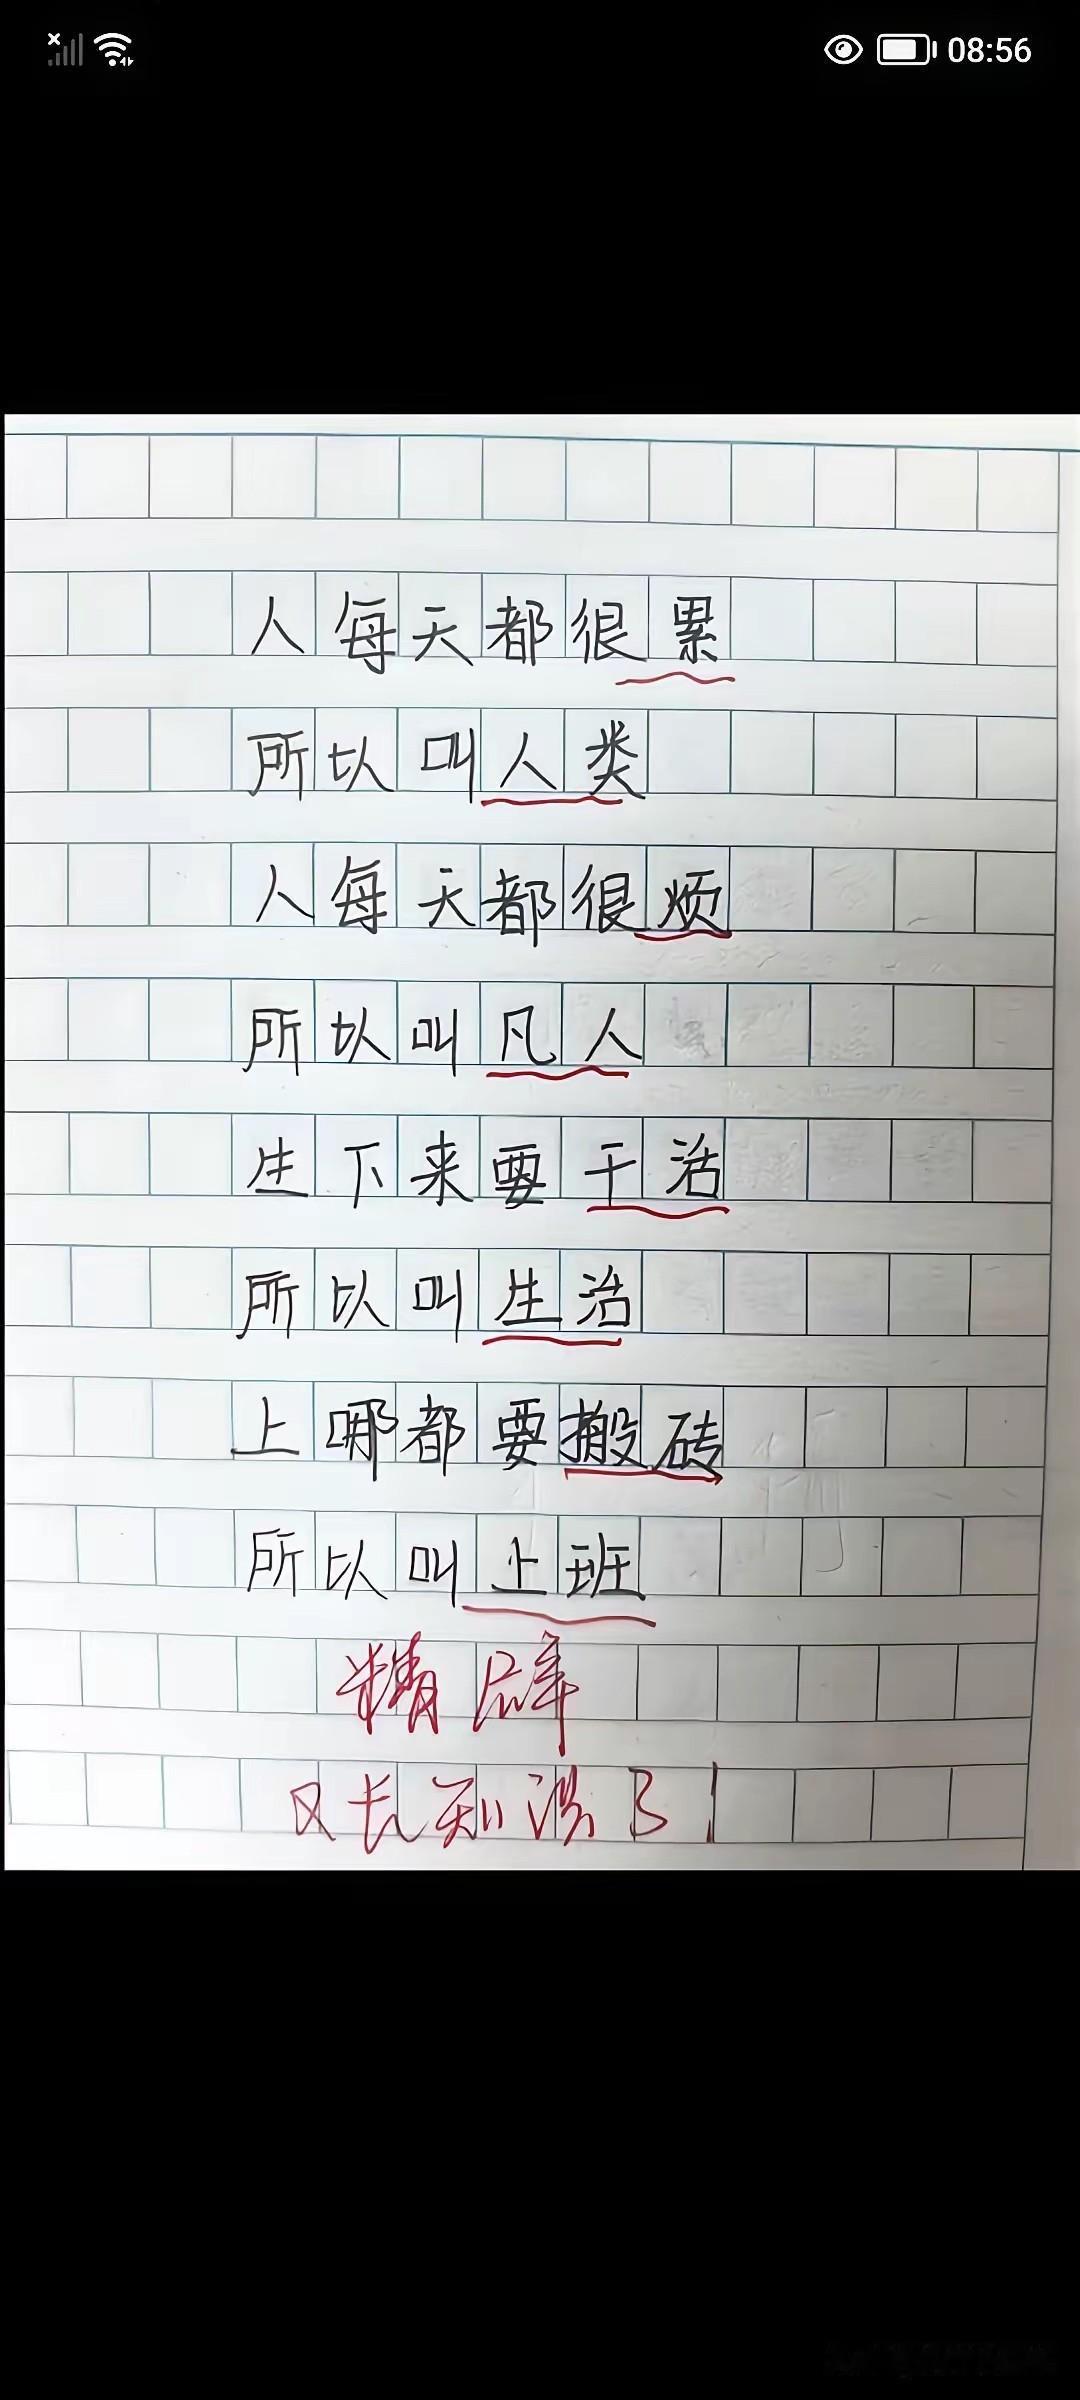 08:56
人每天都很累
所以叫人类
人每天都很烦
所以叫凡人
生下来要干活
所以叫生活
上哪都要搬砖
所以叫上班
精辟
又长知识了!